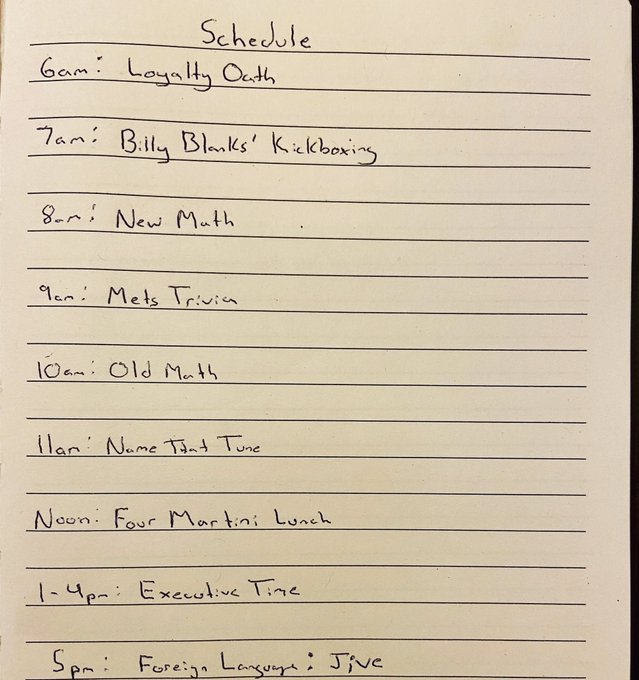 Schedule
6am: Loyalty Oath
7am: Billy Blanks' Kickboxing
8am: New Math
9am: Mets Trivia
10am: Old Math
11am: Name That Tune
Noon: Four Martini Lunch
1-4pm: Executive Time
5pm: Foreign Language: Jive